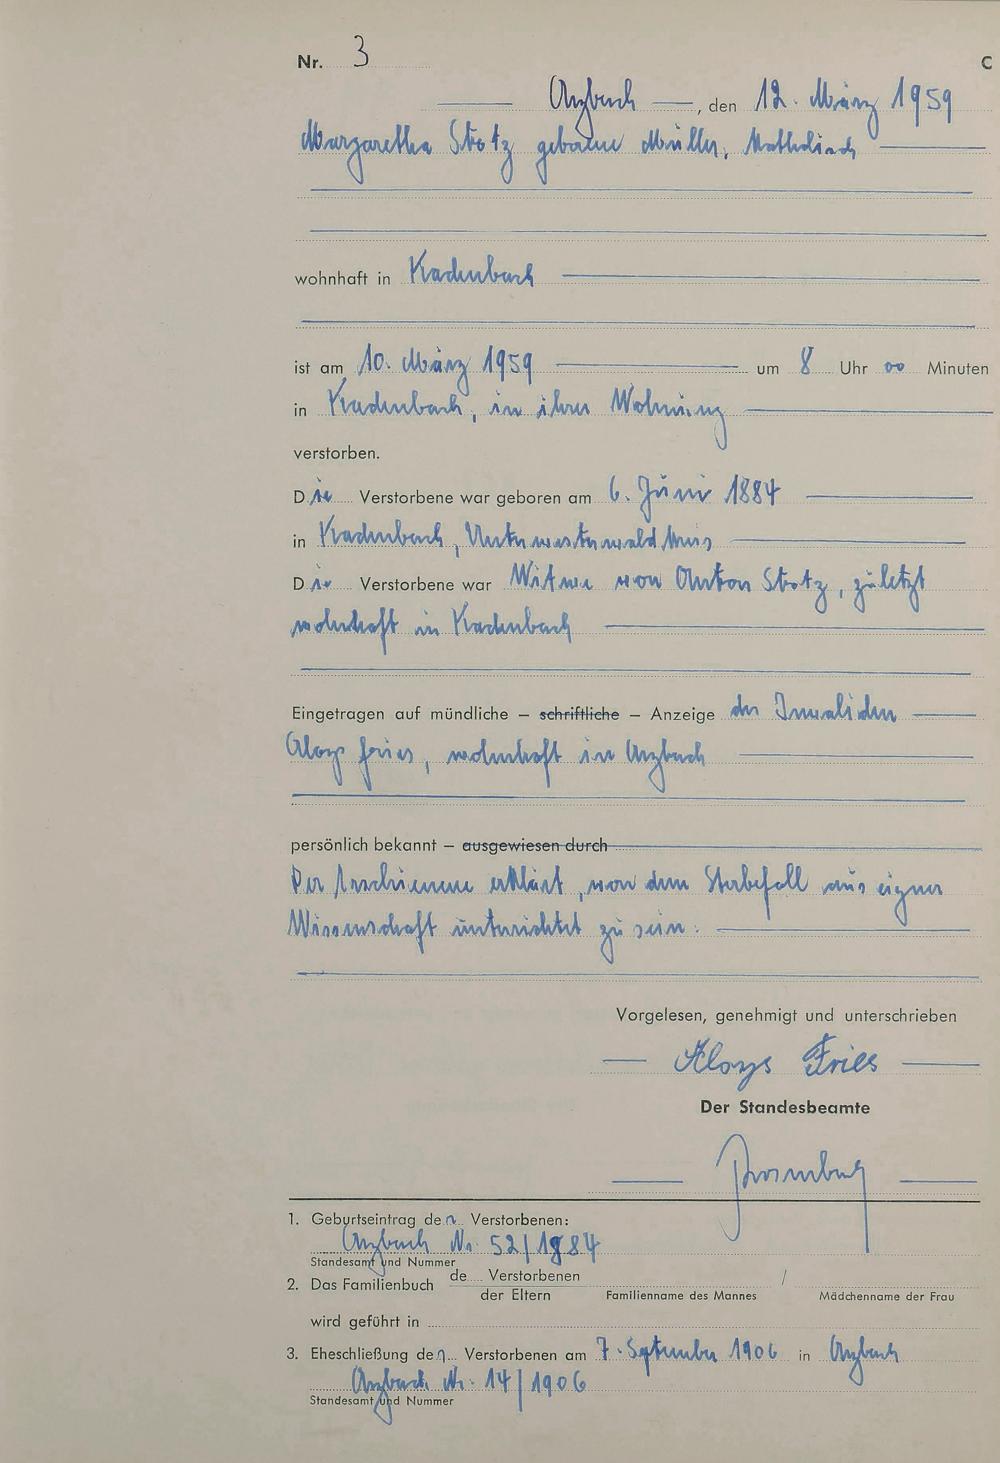 Nr. 3 C
Arzbach, den 12. März 1959
Margaretha Stotz geborene Müller, katholisch
wohnhaft in Kadenbach
ist am 10. März 1959 um 8 Uhr 00 Minuten
in Kadenbach, in ihrer Wohnung
verstorben.
Die Verstorbene war geboren am 6. Juni 1884
in Kadenbach, Unterwesterwaldkreis
Die Verstorbene war Witwe von Anton Stotz, zuletzt
wohnhaft in Kadenbach
Eingetragen auf mündliche – schriftliche – Anzeige des Invaliden
Aloys Fries, wohnhaft in Arzbach
persönlich bekannt – ausgewiesen durch
Der Erschienene erklärt, von dem Sterbefall aus eigner
Wissenschaft unterrichtet zu sein.
Vorgelesen, genehmigt und unterschrieben
Aloys Fries
Der Standesbeamte
1. Geburtseintrag der Verstorbenen:
Arzbach Nr. 52/1884
Standesamt und Nummer
2. Das Familienbuch de Verstorbenen /
der Eltern Familienname des Mannes Mädchenname der Frau
wird geführt in
3. Eheschließung der Verstorbenen am 7. September 1906 in Arzbach
Arzbach Nr. 14/1906
Standesamt und Nummer